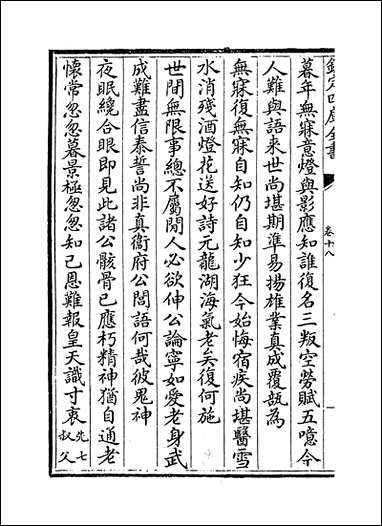 欽定四庫全書
卷十八
暮年無寐意燈與影應知誰復名三叛空勞賦五噫今
人難與語来世尚堪期準易揚雄業真成覆瓿為
無寐復無寐自知仍自知少狂今始悔宿疾尚堪醫雪
水消殘酒燈花送好詩元龍湖海氣老矣復何施
世間無限事總不屬閒人必欲伸公論寧如愛老身武
成難盡信泰誓尚非真衛府公閲語何哉彼鬼神
夜眠纔合眼即見此諸公骸骨已應朽精神猶自通老
懷常忽忽暮景極怱怱知己恩難報皇天識寸衷
先七
叔父